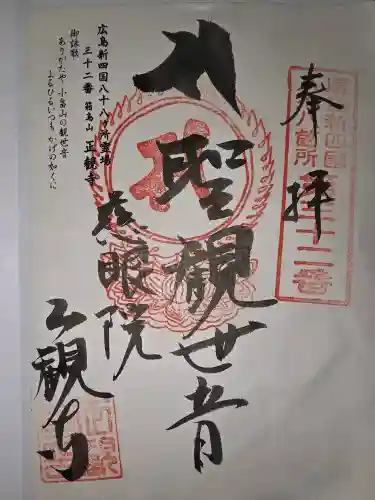 奉拝
新四国
八十八箇所
三十二番
聖観世音
慈眼院
正観寺
広島新四国八十八ヶ所霊場
三十二番 箱島山 正観寺
御詠歌
ありがたや 小畠山の観世音
よるひるいつも かげの如くに